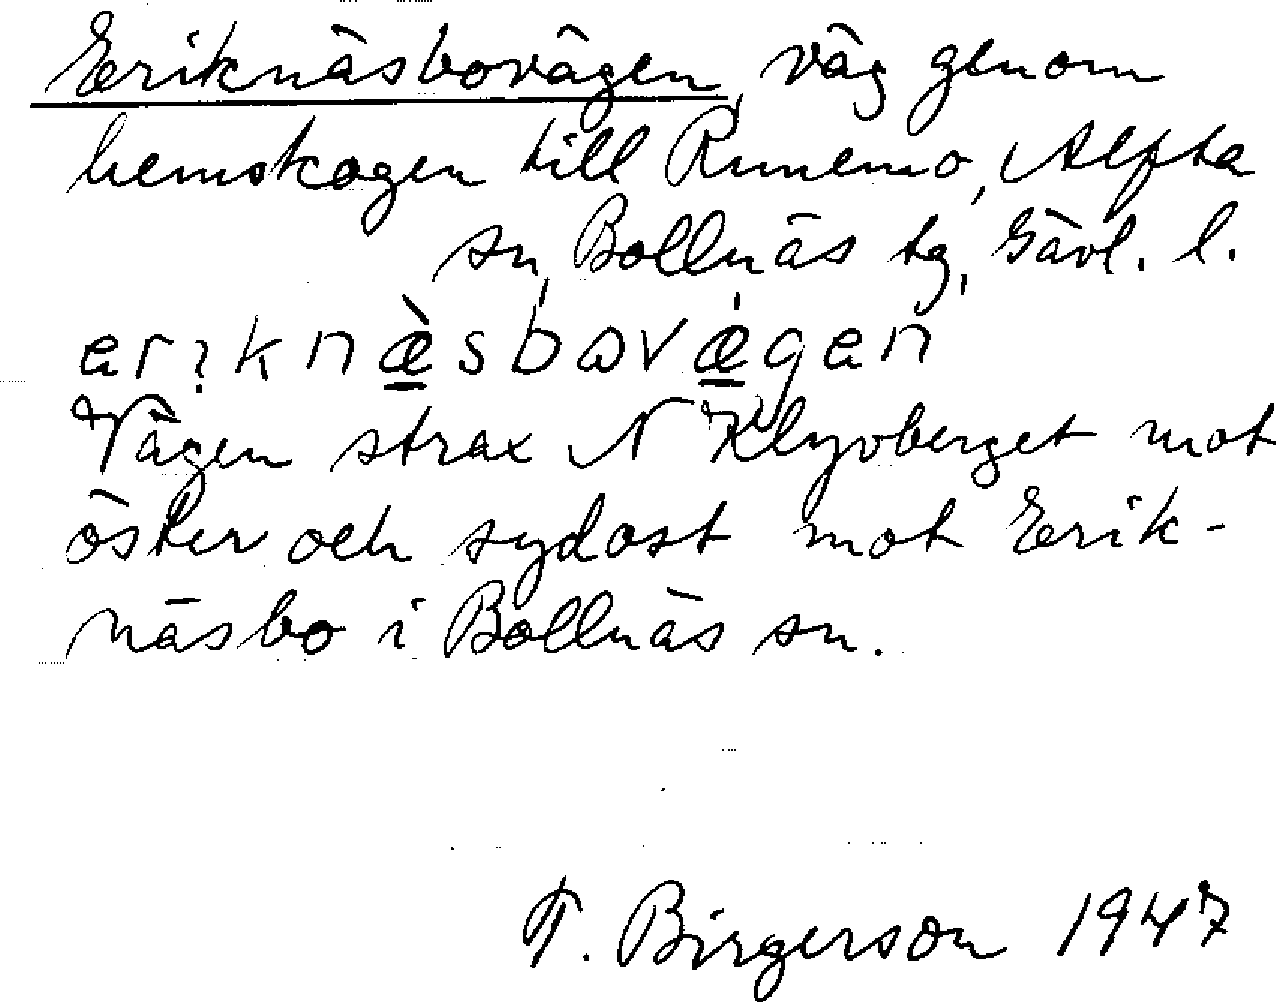 Eriknäsbovägen, väg genom
hemskogen till Runemo, Alfta
sn, Bollnäs tg, Gävl. l.
Vägen strax N Klyvberget mot
öster och sydost mot Erik-
näsbo i Bollnäs sn.
T. Birgerson 1947